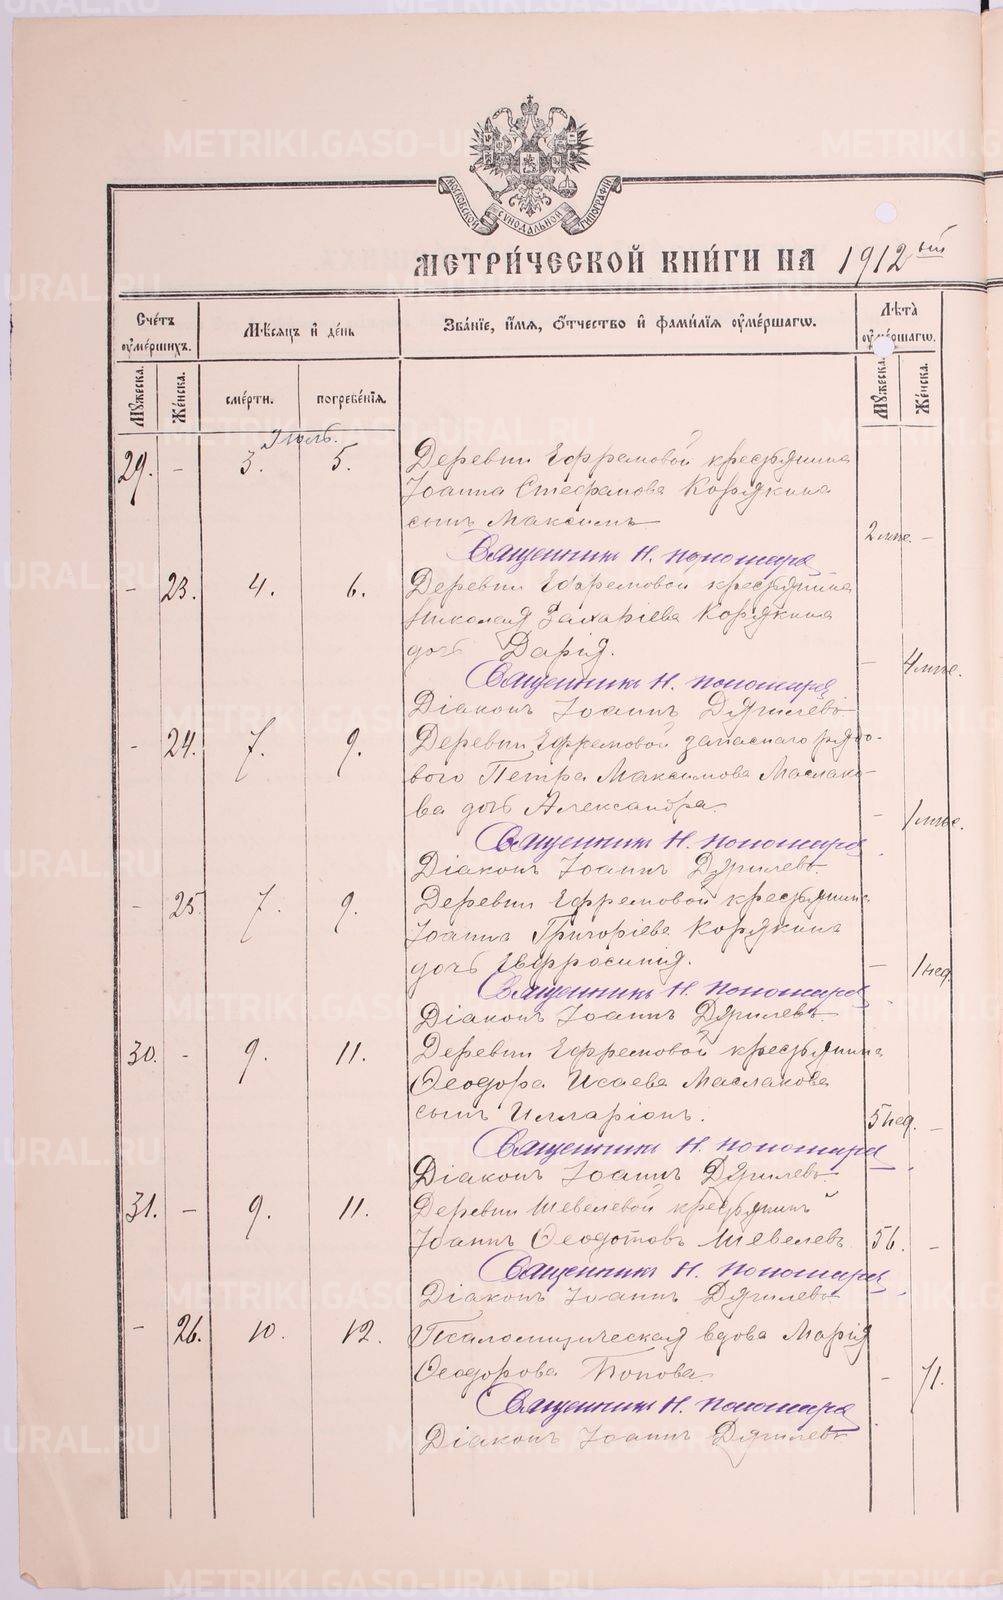 МОСКОВСКОЙ СУНОДАЛЬНОЙ ТИПОГРАФІИ
МЕТРИ́ЧЕСКОЙ КНИ́ГИ НА 1912 ый
Сче́тъ ѹме́ршихъ.
Мѣ́сяцъ и҆ де́нь
Зва́нїе, и҆́мѧ, ѻ҆́тчество и҆ фами́лїѧ ѹме́ршагѡ.
Лѣ́та ѹме́ршагѡ.
Мꙋ́жеска.
Же́нска.
сме́рти.
погребе́нїѧ.
Мꙋ́жеска.
Же́нска.
Іюль.
29. - 3. 5. Деревни Ефремовой крестьянина
Іоанна Стефанова Корякина
сынъ Максимъ 2 мѣс. -
Священникъ Н. Пономарев
- 23. 4. 6. Деревни Ефремовой крестьянина
Николая Захаріева Корякина
дочь Дарія. - 4 мѣс.
Священникъ Н. Пономарев
Діаконъ Іоаннъ Дягилевъ
- 24. 7. 9. Деревни Ефремовой запаснаго рядо-
вого Петра Максимова Маслако-
ва дочь Александра. - 1 мѣс.
Священникъ Н. Пономарев
Діаконъ Іоаннъ Дягилевъ.
- 25. 7. 9. Деревни Ефремовой крестьянина
Іоанна Григоріева Корякина
дочь Евфросинія. - 1 нед.
Священникъ Н. Пономарев
Діаконъ Іоаннъ Дягилевъ
30. - 9. 11. Деревни Ефремовой крестьянина
Ѳеодора Исаева Маслакова
сынъ Илларіонъ. 5 нед. -
Священникъ Н. Пономарев
Діаконъ Іоаннъ Дягилевъ
31. - 9. 11. Деревни Шевелевой крестьянинъ
Іоаннъ Ѳеодотовъ Шевелевъ 56. -
Священникъ Н. Пономарев
Діаконъ Іоаннъ Дягилевъ
- 26. 10. 12. Псаломщическая вдова Марія
Ѳеодорова Попова. - 71.
Священникъ Н. Пономарев
Діаконъ Іоаннъ Дягилевъ
METRIKI.GASO-URAL.RU